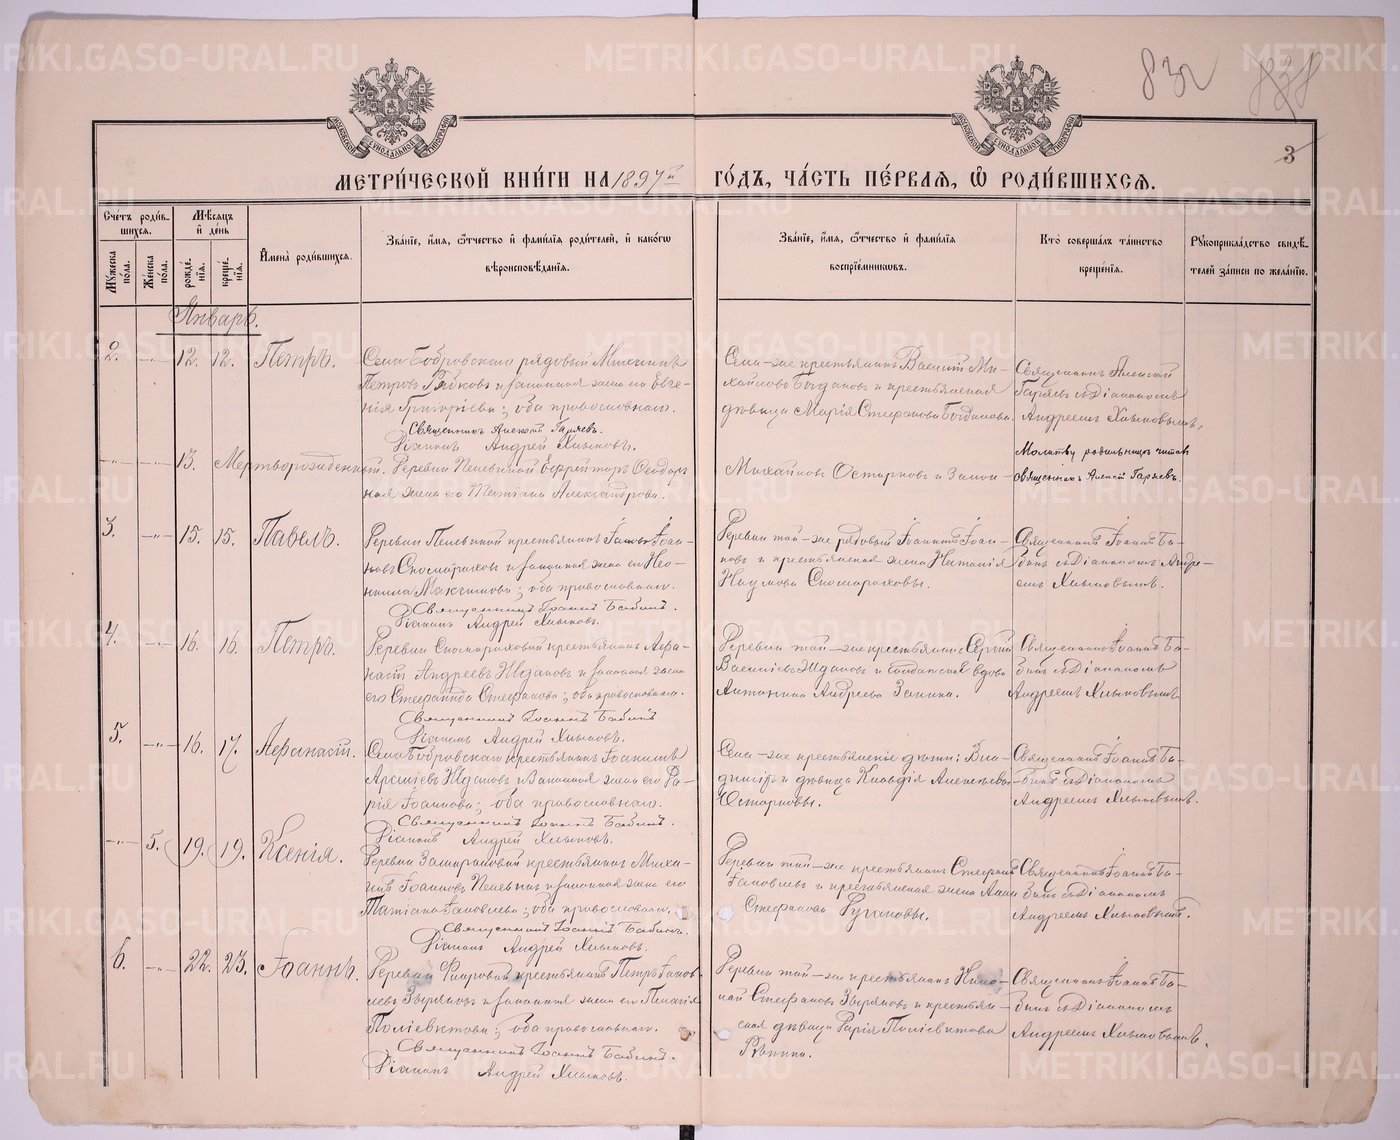 832 838
3
МЕТРИЧЕСКОЙ КНИГИ НА 1897й ГОДЪ, ЧАСТЬ ПЕРВАЯ, Ѡ РОДИВШИХСЯ.
Счетъ родившихся.
Мѣсяцъ и день
Имена родившихся.
Званіе, имя, отчество и фамилія родителей, и какого вѣроисповѣданія.
Званіе, имя, отчество и фамилія воспріемниковъ.
Кто совершалъ таинство крещенія.
Рукоприкладство свидѣтелей записи по желанію.
Мужеска пола.
Женска пола.
рожденія.
крещенія.
Январь.
2. -"- 12. 12. Петръ.
Села Бобровскаго рядовый
Петровъ и законная жена его Евге-
нія Григоріева; оба православнаго.
Священникъ Алексій Гаряевъ.
Діаконъ Андрей Хлыновъ.
Села-же крестьянинъ Василій Ми-
хайловъ Богдановъ и крестьянская
дѣвица Марія Стефанова Богданова.
Священникъ Алексій
Гаряевъ съ Діакономъ
Андреемъ Хлыновымъ,
-"- -"- 13. Мертворожденный.
Деревни Ефрейторъ Ѳеодоръ Михайловъ и закон-
ная жена его Александрова.
Молитву родильницѣ читалъ
священникъ Алексій Гаряевъ.
3. -"- 15. 15. Павелъ.
Деревни крестьянинъ Іоан-
новъ Скоморохов и законная жена его Нео-
нилла Максимова; оба православнаго.
Священникъ Іоаннъ Бабинъ.
Діаконъ Андрей Хлыновъ.
Деревни той-же рядовый Іоаннъ Іоан-
новъ и крестьянская жена Наталія
Наумова Скомороховы.
Священникъ Іоаннъ Ба-
бинъ съ Діакономъ Андре-
емъ Хлыновымъ.
4. -"- 16. 16. Петръ.
Деревни Скомороховой крестьянинъ Афа-
насій Андреевъ Ждановъ и законная жена
его Стефанида Стефанова; оба православнаго.
Священникъ Іоаннъ Бабинъ
Діаконъ Андрей Хлыновъ.
Деревни той-же крестьянинъ Сергій
Васильевъ Ждановъ и солдатская вдова
Антонина Андреева Занина.
Священникъ Іоаннъ Ба-
бинъ съ Діакономъ
Андреемъ Хлыновымъ
5. -"- 16. 17. Афанасій.
Села Бобровскаго крестьянинъ Іоанникій
Арсеніевъ Ждановъ и законная жена его Ма-
рія Іоаннова; оба православнаго.
Священникъ Іоаннъ Бабинъ.
Діаконъ Андрей Хлыновъ.
Села-же крестьянскіе дѣти: Вла-
диміръ и дѣвица Клавдія Алексѣевы
Священникъ Іоаннъ Ба-
бинъ съ Діакономъ
Андреемъ Хлыновымъ.
-"- 5. 19. 19. Ксенія.
Деревни крестьянинъ Миха-
илъ Іоанновъ и законная жена его
Татіана Іаковлева; оба православнаго.
Священникъ Іоаннъ Бабинъ.
Діаконъ Андрей Хлыновъ.
Деревни той-же крестьянинъ Стефанъ
Іаковлевъ и крестьянская жена Анна
Стефанова
Священникъ Іоаннъ Ба-
бинъ съ Діакономъ
Андреемъ Хлыновымъ.
6. -"- 22. 23. Іоаннъ.
Деревни крестьянинъ Петръ Іаков-
левъ Звѣревъ и законная жена его Пелагія
Поліевктова; оба православнаго.
Священникъ Іоаннъ Бабинъ.
Діаконъ Андрей Хлыновъ.
Деревни той-же крестьянинъ Нико-
лай Стефановъ и крестьян-
ская дѣвица Марія Поліевктова
Священникъ Іоаннъ Ба-
бинъ съ Діакономъ
Андреемъ Хлыновымъ.
METRIKI.GASO-URAL.RU